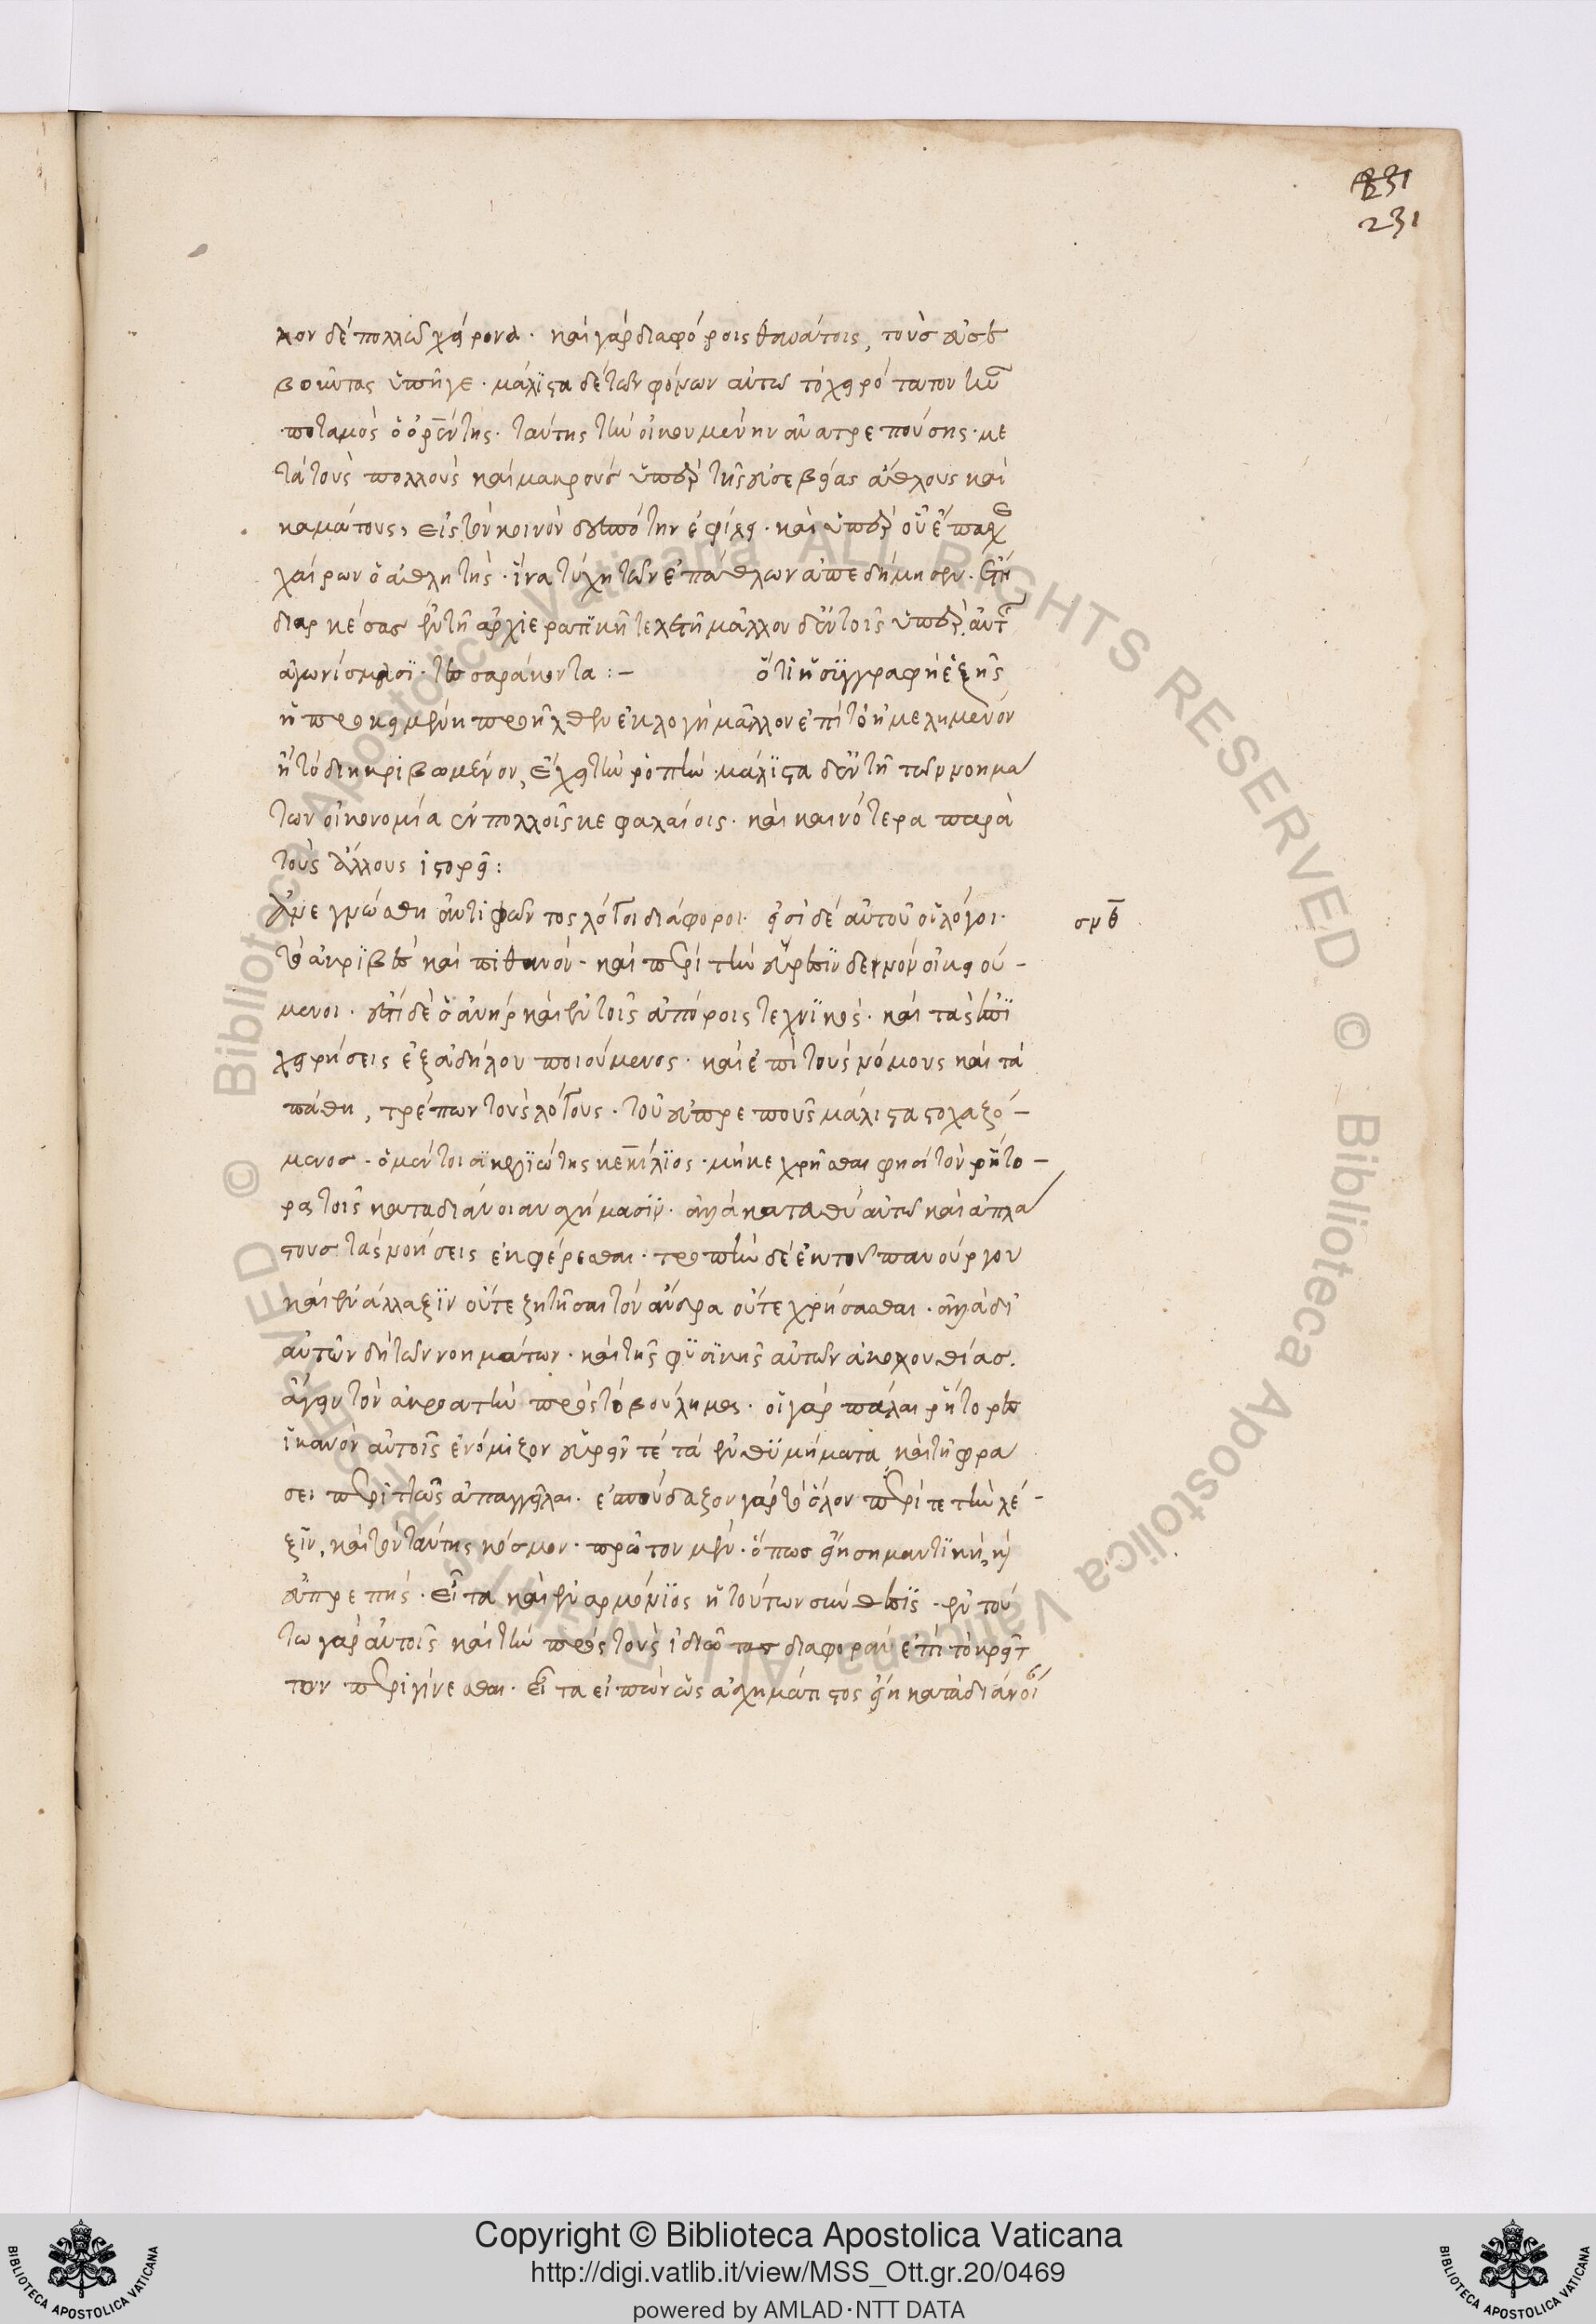 231
231
λον δὲ πολλῶ χείρονα. καὶ γὰρ διαφόροις θανάτοις, τοὺς εὐσε
βοῦντας ὑπῆγε. μάλιστα δὲ τῶν φόνων αὐτῶ τὸ χωρό τατον ἦν
ποταμὸς ὁ ὀρέντης. ταύτης τὴν οἰκουμένην ἀνατρεπούσης. με
τὰ τοὺς πολλοὺς καὶ μακροὺς ὑπὲρ τῆς εὐσεβείας ἄθλους καὶ
καμάτους, εἰς τὸν κοινὸν δεσπότην ἐφίλει. καὶ ὑπὲρ οὗ ἔπασχε
χαίρων ὁ ἀθλητὴς. ἵνα τύχη τῶν ἐπάθλων ἀπεδήμησεν. ἔτη
διαρκέσας ἐν τῆ ἀρχιερατικῆ τελετῆ μᾶλλον δὲ ἐν τοῖς ὑπὲρ αὐτῆς
ἀγωνίσμασι. τεσσαράκοντα :– ὅτι ἡ συγγραφὴ ἑξῆς
ἡ προκειμένη προῆλθεν ἐκλογὴ μᾶλλον ἐπὶ τὸ ἠμελημένον
ἢ τὸ διηκριβωμένον, ἔχει τὴν ῥοπὴν. μάλιστα δὲ ἐν τῆ τῶν νοημά
των οἰκονομία ἐν πολλοῖς κεφαλαίοις. καὶ καινότερα παρὰ
τοὺς ἄλλους ἱστορεῖ:
Ἀνεγνώσθη ἀντιφῶντος λόγοι διάφοροι. εἰσὶ δὲ αὐτοῦ οἱ λόγοι. σνθ
τὸ ἀκριβὲς καὶ πιθανὸν. καὶ περὶ τὴν εὕρεσιν δεινὸν οἰκειού–
μενοι. ἔτι δὲ ὁ ἀνὴρ καὶ ἐν τοῖς ἀπόροις τεχνικὸς. καὶ τὰς ἐπι
χειρήσεις ἐξ ἀδήλου ποιούμενος. καὶ ἐπὶ τοὺς νόμους καὶ τὰ
πάθη, τρέπων τοὺς λόγους. τοῦ εὐπρεποῦς μάλιστα στοχαζό–
μενος. ὁ μέντοι σικελιώτης κεκίλιος. μὴ κεχρῆσθαι φησὶ τὸν ῥήτο–
ρα τοῖς κατὰ διάνοιαν σχήμασιν. ἀλλὰ κατ' εὐθὺ αὐτῶ καὶ ἀπλά
στους τὰς νοήσεις ἐκφέρεσθαι. τροπὴν δὲ ἐκ τοῦ πανούργου
καὶ ἐνάλλαξιν οὔτε ζητῆσαι τὸν ἄνδρα οὔτε χρήσασθαι. ἀλλὰ δι'
αὐτῶν δὴ τῶν νοημάτων. καὶ τῆς φυσικῆς αὐτῶν ἀκολουθίας.
ἄγειν τὸν ἀκροατὴν πρὸς τὸ βούλημα. οἱ γὰρ πάλαι ῥήτορες
ἱκανὸν αὐτοῖς ἐνόμιζον εὑρεῖν τέ τὰ ἐνθυμήματα, καὶ τῆ φρά
σει περιττῶς ἀπαγγεῖλαι. ἐσπούδαζον γὰρ τὸ ὅλον περί τε τὴν λέ–
ξιν, καὶ τὸν ταύτης κόσμον. πρῶτον μὲν. ὅπως εἴη σημαντικὴ, καὶ
εὐπρεπὴς. εἶτα καὶ ἐναρμόνιος ἡ τούτων σύνθεσις. ἐν τού
τω γὰρ αὐτοῖς καὶ τὴν πρὸς τοὺς ἰδιώτας διαφορὰν ἐπὶ τὸ κρεῖτ
τον περιγίνεσθαι. εἶτα εἰπὼν ὡς ἀσχημάτιστος εἴη κατὰ διάνοι
Copyright © Biblioteca Apostolica Vaticana
http://digi.vatlib.it/view/MSS_Ott.gr.20/0469
powered by AMLAD·NTT DATA
BIBLIOTECA APOSTOLICA VATICANA
BIBLIOTECA APOSTOLICA VATICANA
© Biblioteca Apostolica Vaticana ALL RIGHTS RESERVED © Biblioteca Apostolica Vaticana ALL RIGHTS RESERVED